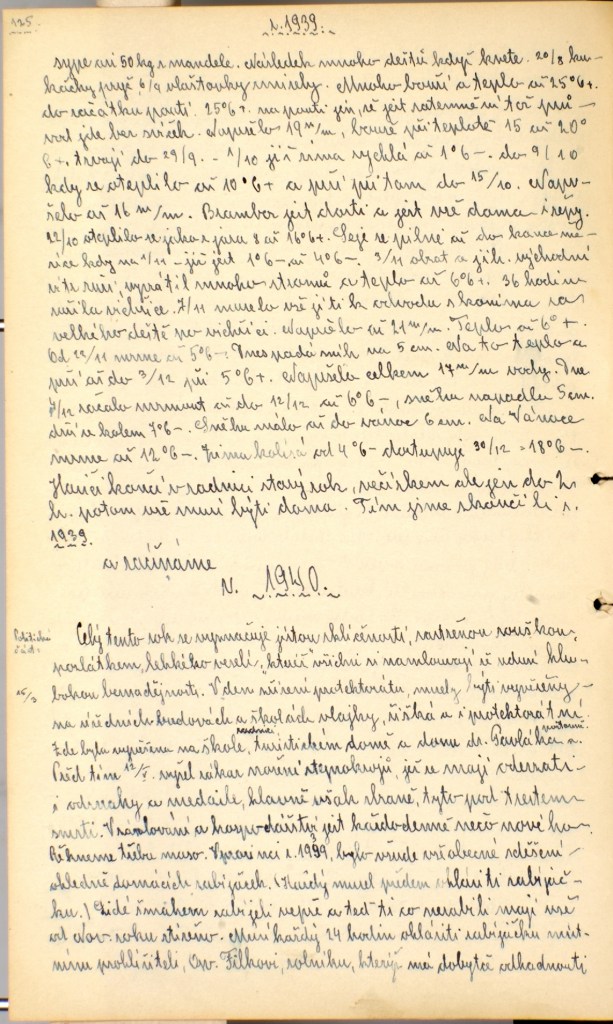 125.
r. 1939.
sype ani 50 kg z mandele. Následek mnoho dešťů když kvete. 20/8 ku-
kačky pryč, 6/9 vlaštovky zmizely. Mnoho bouří a teplo až 25°C+.
do začátku pouti. 25°C+. na pouti jen, že jest zatemnění tož prů-
vod jde bez svíček. Napršelo 19 m/m, bouře při teplotě 15 až 20°
C+, trvají do 29/9. - 1/10 již zima rychlá až 1°C-. do 9/10
kdy se oteplilo až 10°C+ a prší při tom do 15/10. Napr-
šelo až 16 m/m. Brambor jest dosti a jest vše doma i řepy.
22/10 oteplilo se jako z jara 8 až 16°C+. Seje se pilně až do konce mě-
síce kdy na 1/11 - již jest 1°C-, až 4°C-. 3/11 obrat a jih. východní
vítr zuří, vyvrátil mnoho stromů a teplo až 6°C+. 36 hodin
zuřila vichřice. 7/11 muselo vše jíti k odvodu s koníma za
velkého deště po vichřici. Napršelo až 21 m/m. Teplo až 6°+.
Od 22/11 mrzne až 5°C-. Dnes padá sníh na 5 cm. Na to teplo a
prší až do 3/12 při 5°C+. Napršelo celkem 17 m/m vody. Dne
7/12 začalo mrznout až do 12/12 až 6°C-, sněhu napadlo 5 cm.
drží se kolem 7°C-. Sněhu málo až do vánoc 6 cm. Na Vánoce
mrzne až 12°C-. Zima kolísá od 4°C- dostupuje 30/12 = 18°C-.
Hasiči končí v radnici starý rok, večírkem ale jen do 2
h. potom vše musí býti doma. Tím jsme skončili r.
1939.
a začínáme
r. 1940.
Politická
část:
Celý tento rok se vyznačuje jistou sklíčeností, roztřenou
povlátkem, lehkého veselí, "kteří" všichni si namlouvají že udusí hlu-
bokou beznadějnost.
15/3
V den zřízení protektorátu, musely býti vyvěšeny
na úředních budovách a školách vlajky, říšská a i protektorátní.
Zde byla vyvěšena na škole, radnici, turistickém domě a domu dr. Pavláka
Před tím 12/V. vyšel zákaz nošení stejnokrojů, jež se mají odevzdati
i odznaky a medaile, hlavně však zbraně, tyto pod trestem
smrti. V zásobování a hospodářství jest každodenně něco nového.
Řekneme třeba maso. V prosinci r. 1939, bylo všude všeobecné sdělení
ohledně domácích zabijaček. (Každý musel předem ohlásiti zabijač-
ku.) Lidé šmahem zabíjeli vepře a teď ti co nezabili mají vše
od Nov. roku ztíženo. Musí každý 24 hodin ohlásiti zabijačku míst-
nímu prohlížiteli, Filkovi, rolníku, kterýž má dobytče odhadnouti